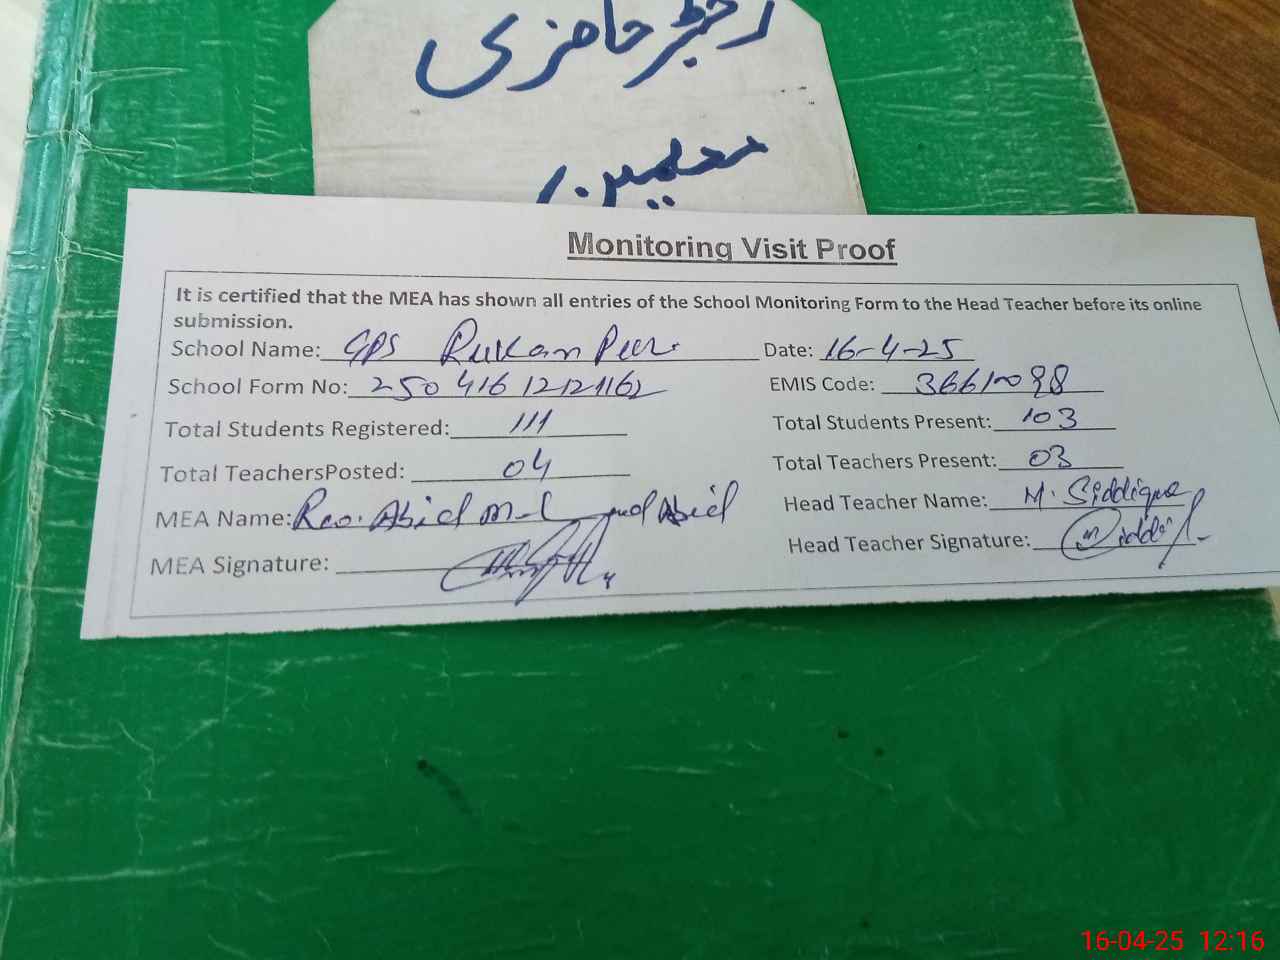 رجسٹر حاضری
معلمین
Monitoring Visit Proof
It is certified that the MEA has shown all entries of the School Monitoring Form to the Head Teacher before its online
submission.
School Name: GPS Rukan Pur Date: 16-4-25
School Form No: 25041612121162 EMIS Code: 36610098
Total Students Registered: 111 Total Students Present: 103
Total TeachersPosted: 04 Total Teachers Present: 03
MEA Name: Rao. Abid Abid Head Teacher Name: M. Siddique
MEA Signature: Head Teacher Signature:
16-04-25 12:16